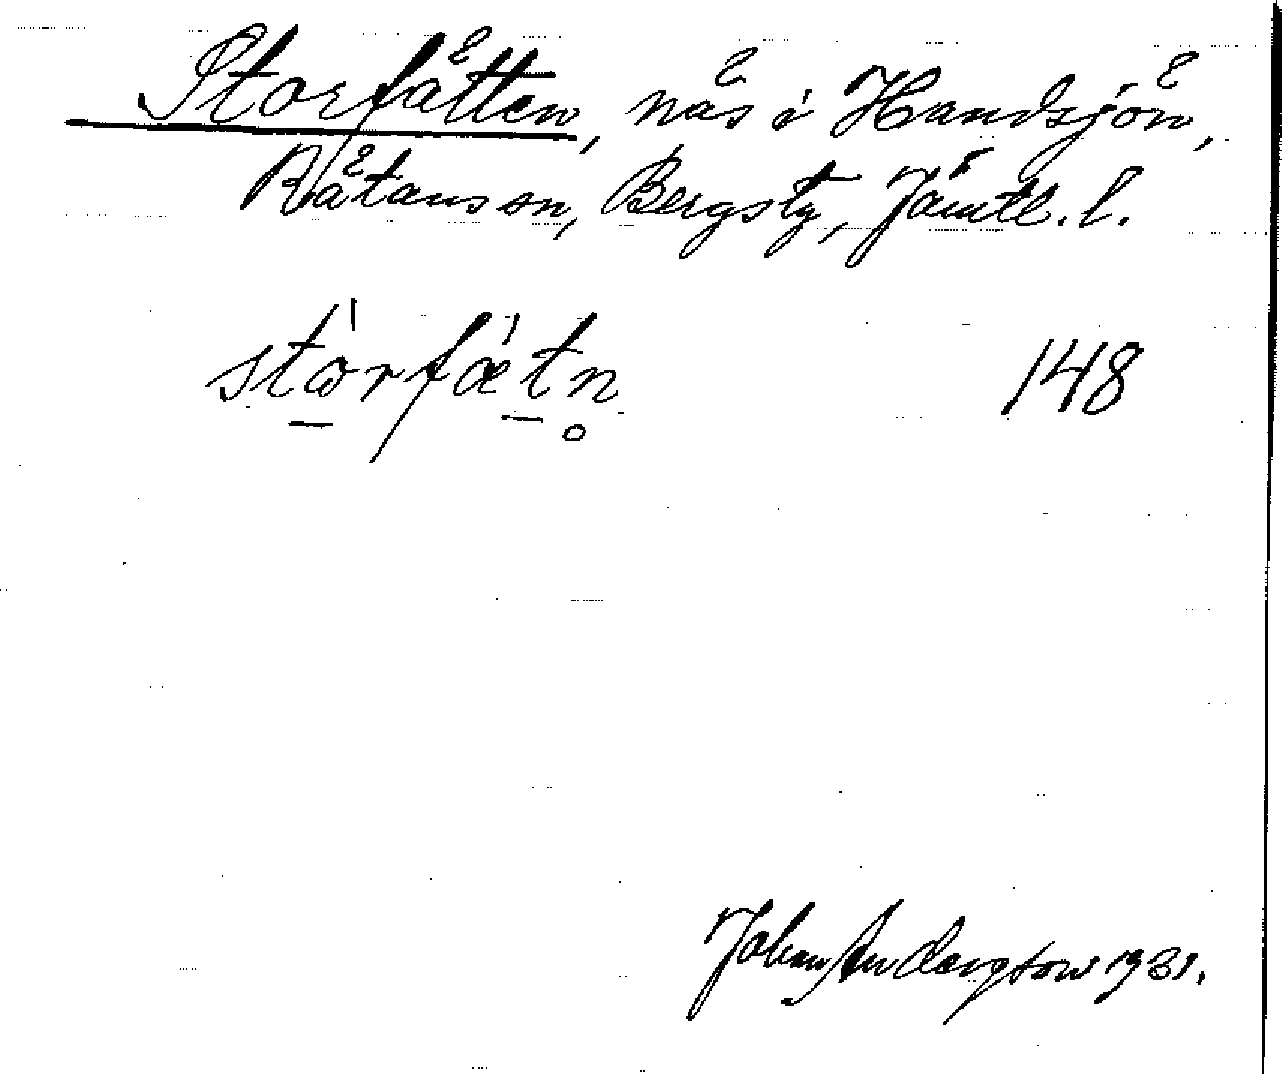 Storfätten, näs i Handsjön,
Rätans sn, Bergs tg, Jämtl. l.
stòrfǽtn̥ 148
Johan Andersson 1931.